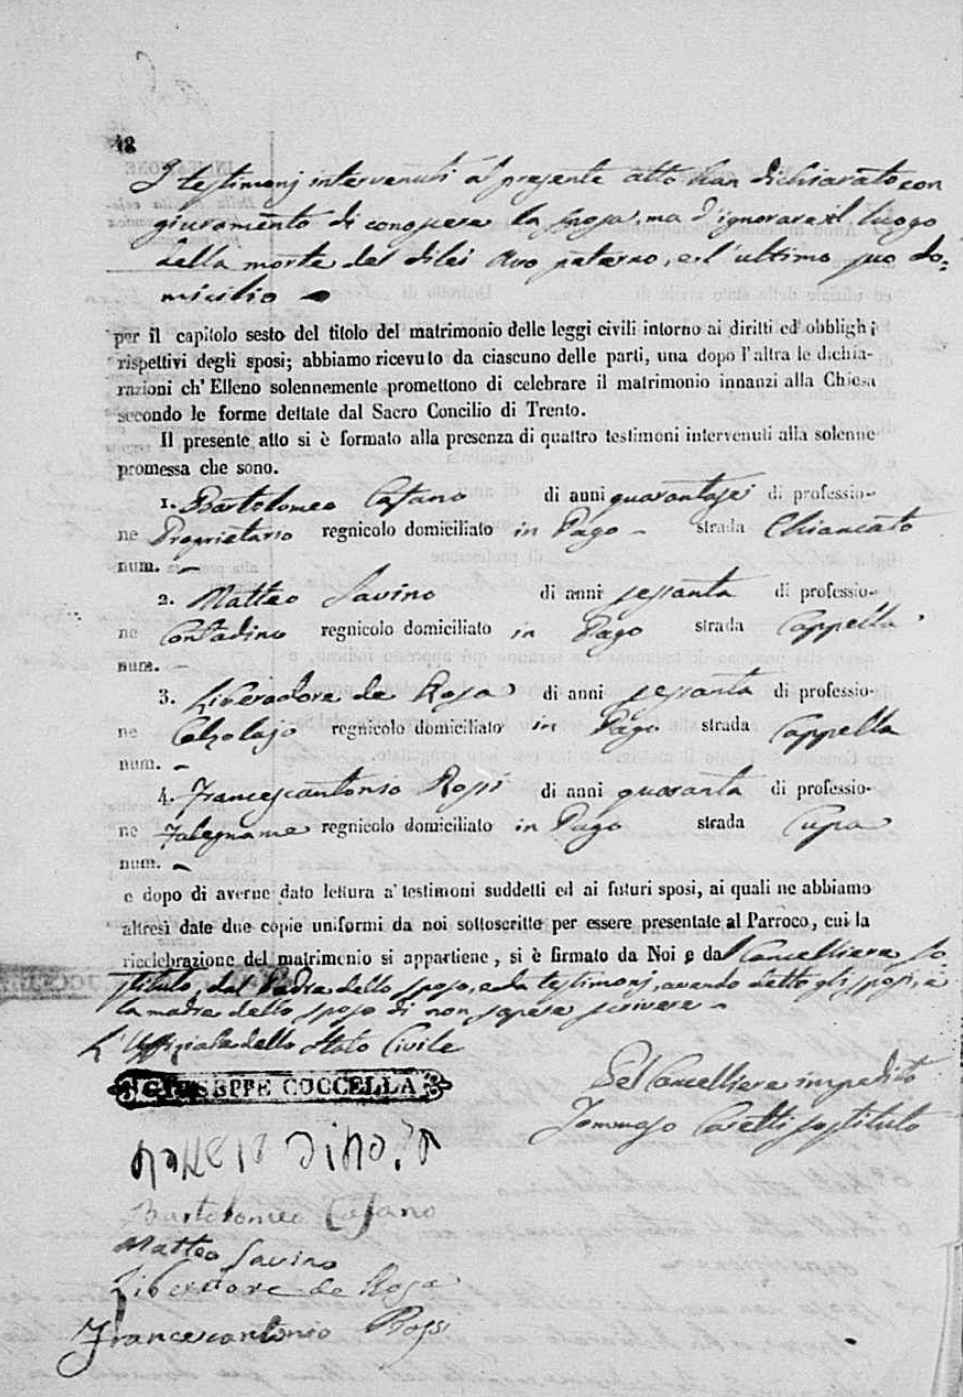 42
I testimonj intervenuti al presente atto han dichiarato con
giuramento di conoscere la sposa, ma d'ignorare il luogo
della morte del dilei Avo paterno, e l'ultimo suo do=
micilio
per il capitolo sesto del titolo del matrimonio delle leggi civili intorno ai diritti ed obblighi
rispettivi degli sposi; abbiamo ricevuto da ciascuno delle parti, una dopo l'altra le dichia-
razioni ch' Elleno solennemente promettono di celebrare il matrimonio innanzi alla Chiesa
secondo le forme dettate dal Sacro Concilio di Trento.
Il presente atto si è formato alla presenza di quattro testimoni intervenuti alla solenne
promessa che sono.
1. Bartolomeo Cafano di anni quarantasei di professio-
ne Proprietario regnicolo domiciliato in Pago – strada Chiancato
num. –
2. Matteo Savino di anni sessanta di professio-
ne Contadino regnicolo domiciliato in Pago strada Cappella
num. –
3. Liberadore de Rosa di anni sessanta di professio-
ne Calzolajo regnicolo domiciliato in Pago strada Cappella
num. –
4. Francescantonio Rossi di anni quaranta di professio-
ne Falegname regnicolo domiciliato in Pago strada Cupa
num. –
e dopo di averne dato lettura a' testimoni suddetti ed ai futuri sposi, ai quali ne abbiamo
altresì date due copie uniformi da noi sottoscritte per essere presentate al Parroco, cui la
ricelebrazione del matrimonio si appartiene, si è firmato da Noi e dal Cancelliere so-
stituto, dal Padre dello sposo, e da testimonj, avendo detto gli sposi, e
la madre dello sposo di non sapere scrivere –
L'Uffiziale dello Stato Civile
GIUSEPPE COCCELLA
Pel Cancelliere impedito
Tommaso Caretti sostituto
Bartolomeo Cafano
Matteo Savino
Liberatore de Rosa
Francescantonio Rossi